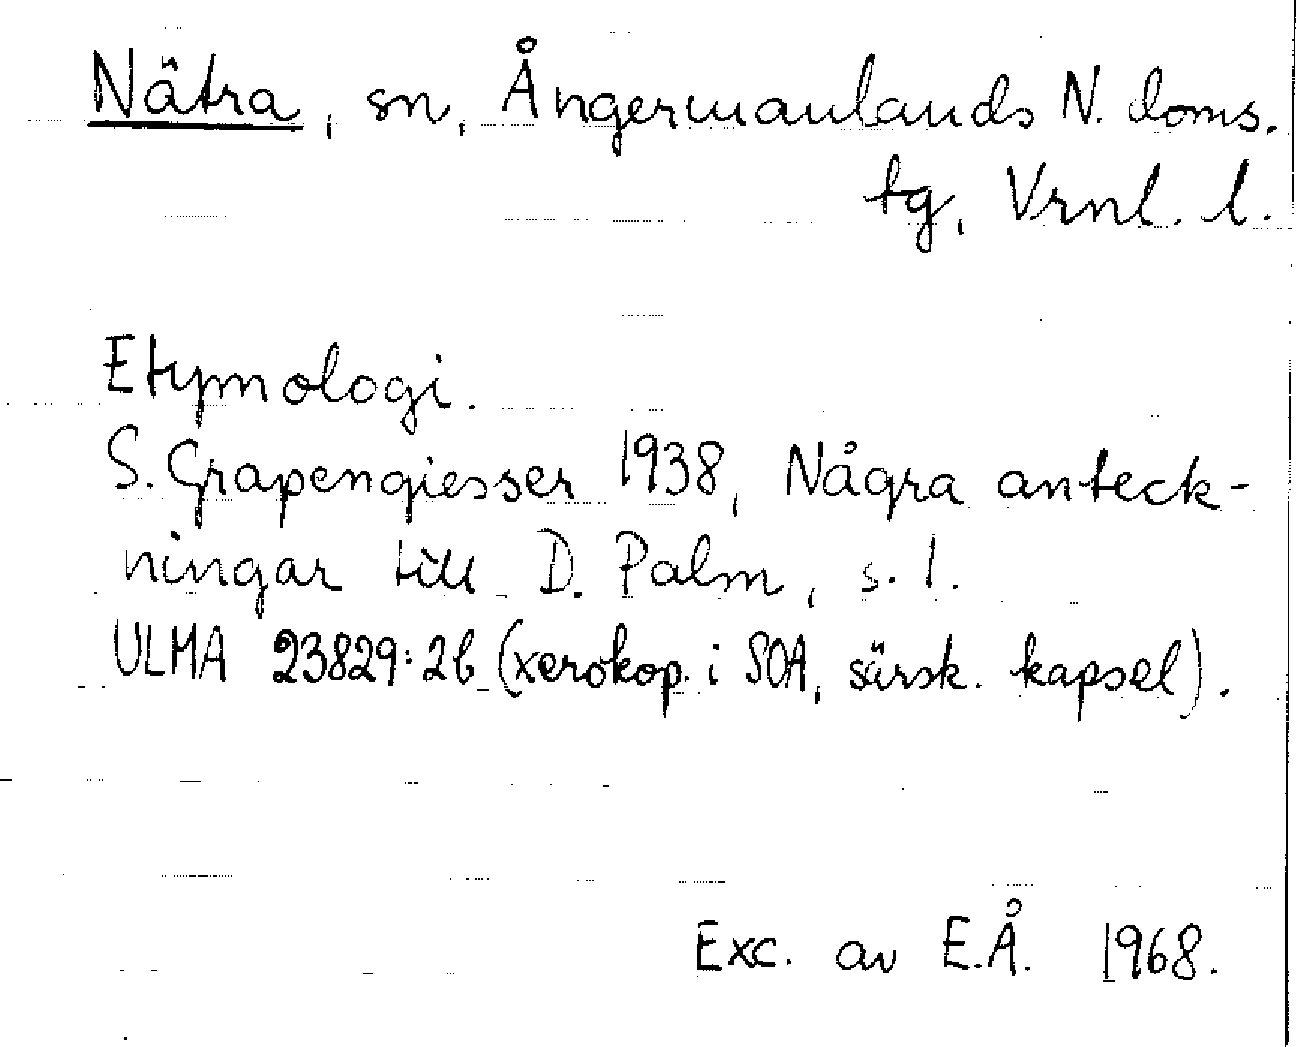 Nätra, sn, Ångermanlands N. doms.
tg, Vrnl. l.
Etymologi.
S. Grapengiesser 1938, Några anteck-
ningar till D. Palm, s. 1.
ULMA 23829:2b (xerokop. i SOA, särsk. kapsel).
Exc. av E.Å. 1968.